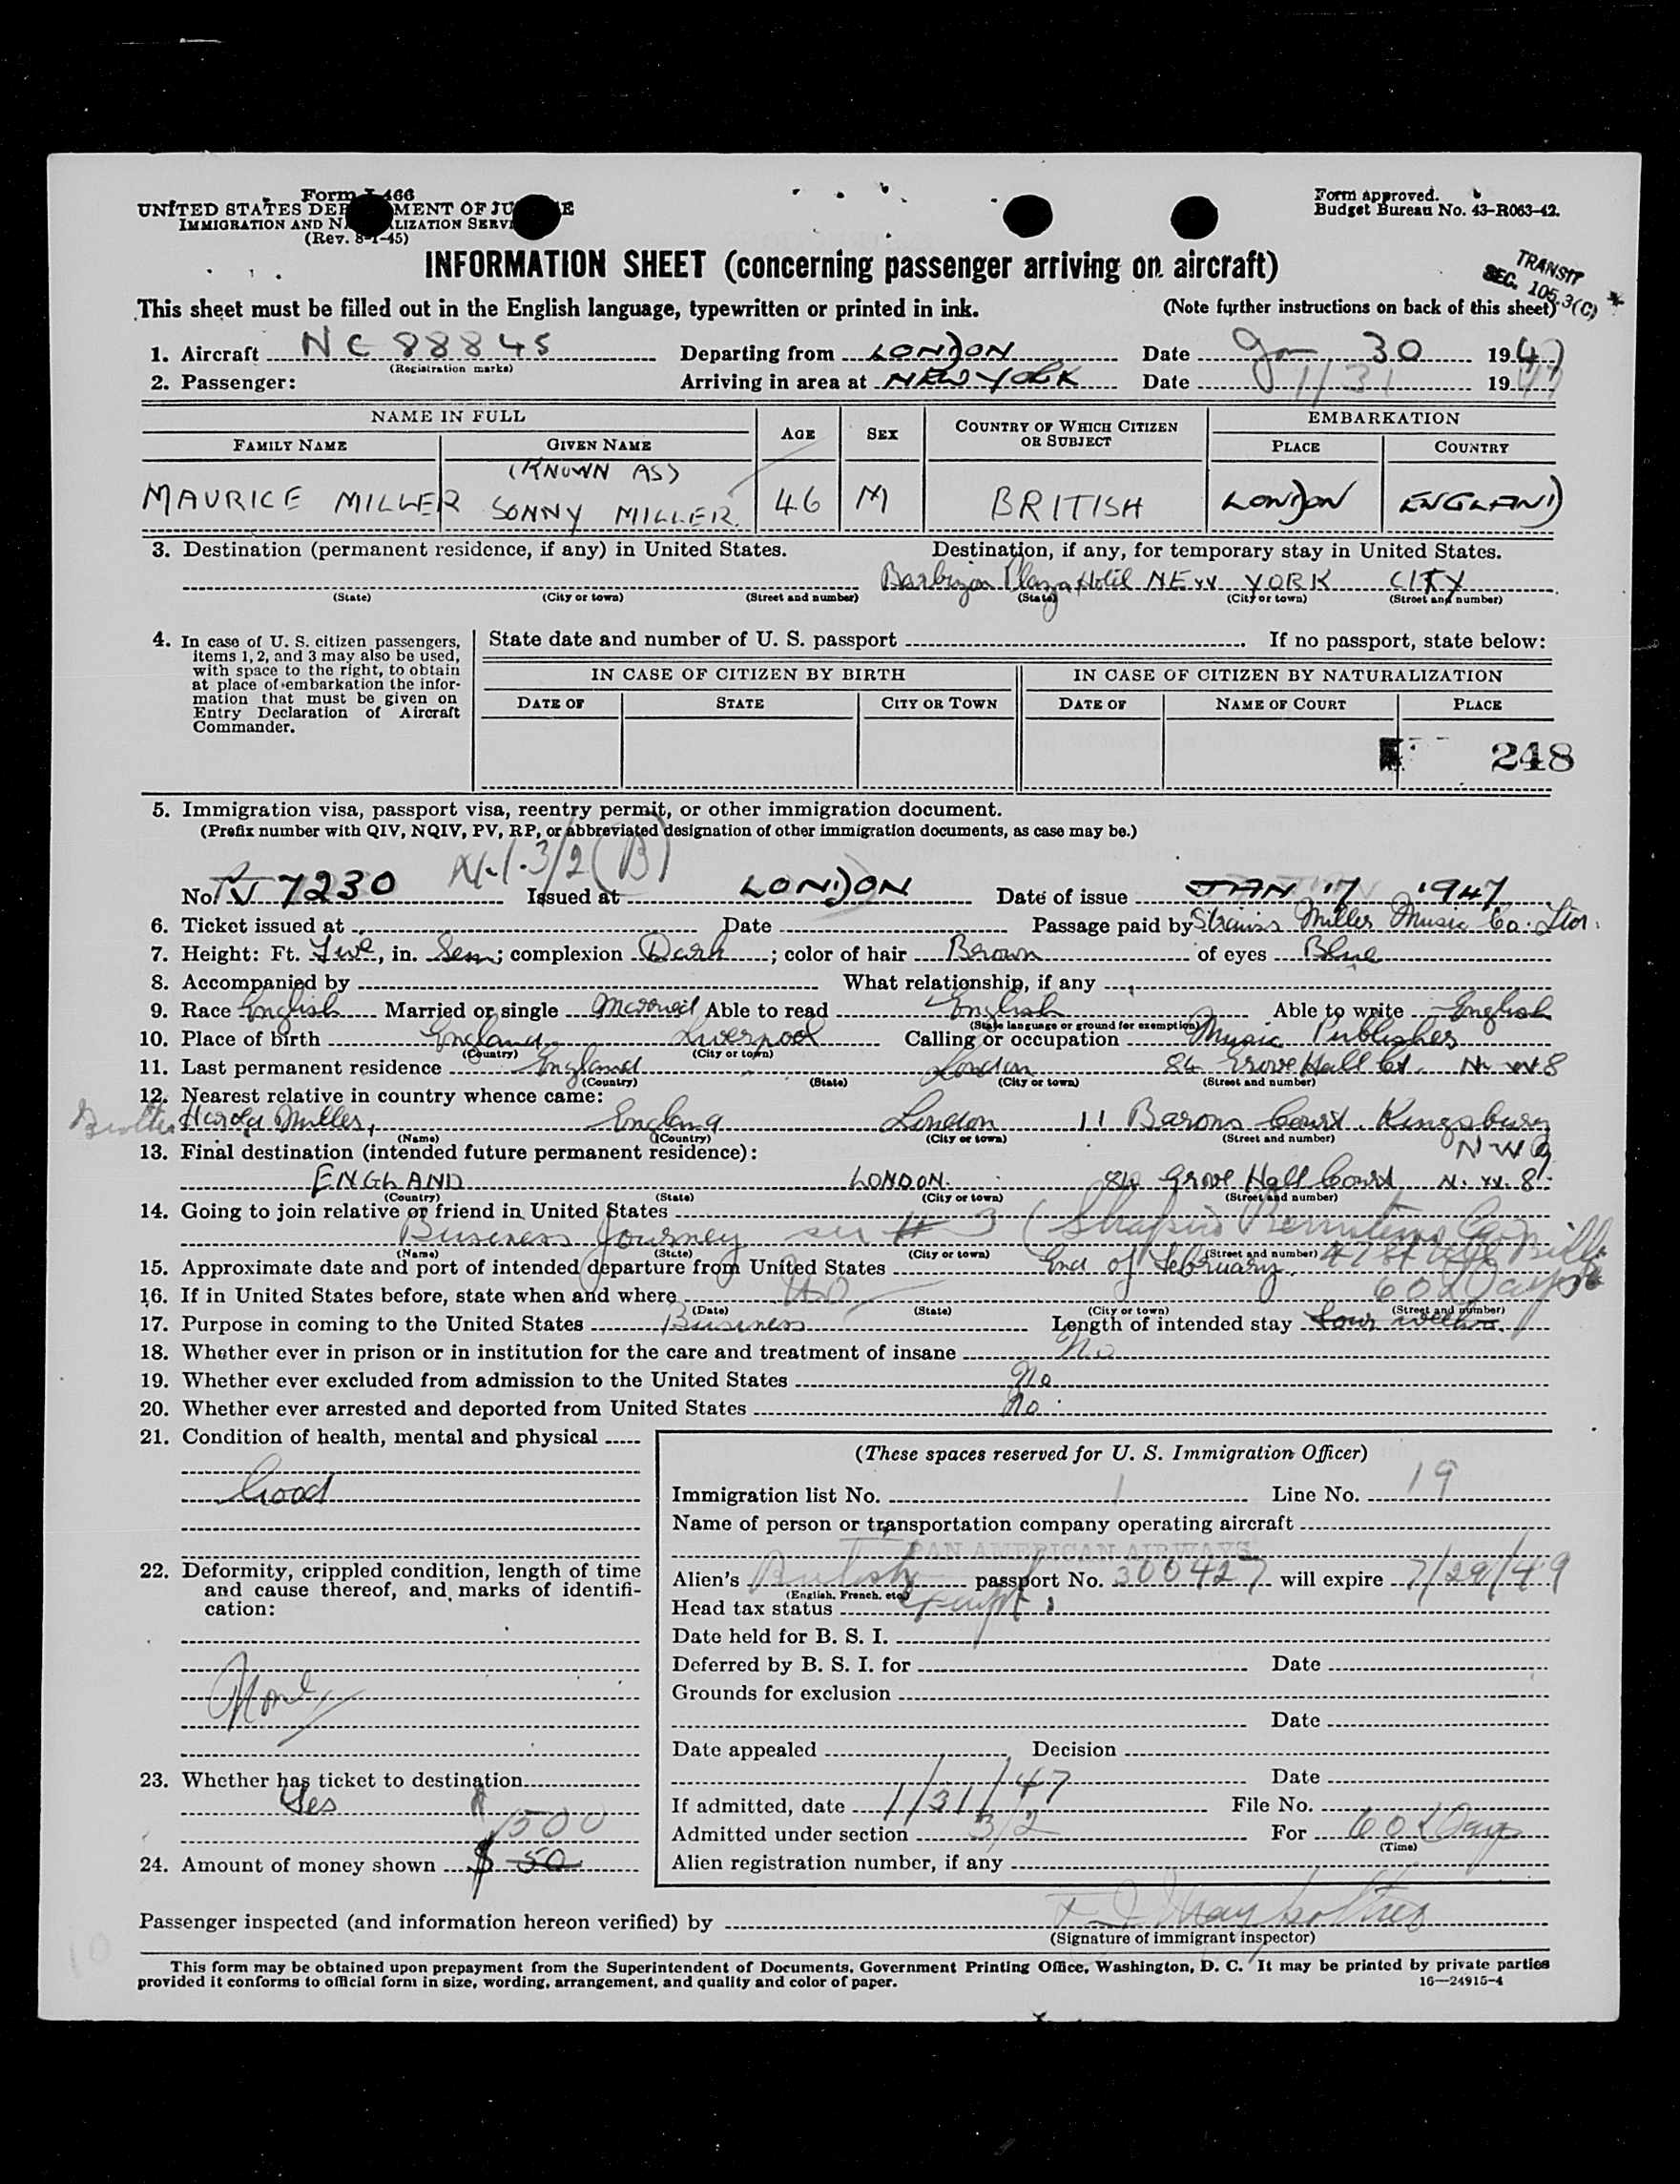 Form I-466
UNITED STATES DEPARTMENT OF JUSTICE
IMMIGRATION AND NATURALIZATION SERVICE
(Rev. 8-1-45)
Form approved.
Budget Bureau No. 43-R063-42.
INFORMATION SHEET (concerning passenger arriving on aircraft)
TRANSIT
SEC. 105.3(C)
This sheet must be filled out in the English language, typewritten or printed in ink. (Note further instructions on back of this sheet)
1. Aircraft NC 88845 Departing from LONDON Date Jan 30 1947
(Registration marks)
2. Passenger: Arriving in area at NEW YORK Date 1/31 1947
NAME IN FULL AGE SEX COUNTRY OF WHICH CITIZEN OR SUBJECT EMBARKATION
FAMILY NAME GIVEN NAME PLACE COUNTRY
(KNOWN AS)
MAURICE MILLER SONNY MILLER. 46 M BRITISH LONDON ENGLAND
3. Destination (permanent residence, if any) in United States. Destination, if any, for temporary stay in United States.
Barbizon Plaza Hotel NEW YORK CITY
(State) (City or town) (Street and number) (State) (City or town) (Street and number)
4. In case of U. S. citizen passengers, items 1, 2, and 3 may also be used, with space to the right, to obtain at place of embarkation the information that must be given on Entry Declaration of Aircraft Commander.
State date and number of U. S. passport If no passport, state below:
IN CASE OF CITIZEN BY BIRTH IN CASE OF CITIZEN BY NATURALIZATION
DATE OF STATE CITY OR TOWN DATE OF NAME OF COURT PLACE
248
5. Immigration visa, passport visa, reentry permit, or other immigration document.
(Prefix number with QIV, NQIV, PV, RP, or abbreviated designation of other immigration documents, as case may be.)
3/2 (B)
No. TV 7230 Issued at LONDON Date of issue JAN 17 1947
6. Ticket issued at Date Passage paid by Strauss Miller Music Co. Ltd.
7. Height: Ft. Five, in. Sem; complexion Dark; color of hair Brown of eyes Blue
8. Accompanied by What relationship, if any
9. Race English Married or single Married Able to read English Able to write English
(State language or ground for exemption)
10. Place of birth England Liverpool Calling or occupation Music Publisher
(Country) (City or town)
11. Last permanent residence England London 84 Grove Hall Ct. N.W8
(Country) (State) (City or town) (Street and number)
12. Nearest relative in country whence came:
Brother Harold Miller, England London 11 Barons Court. Kingsbury
(Name) (Country) (City or town) (Street and number)
N W 9
13. Final destination (intended future permanent residence):
ENGLAND LONDON. 84 Grove Hall Court N.W.8.
(Country) (State) (City or town) (Street and number)
14. Going to join relative or friend in United States
Business Journey see # 3 (Shapiro
(Name) (State) (City or town) (Street and number)
15. Approximate date and port of intended departure from United States End of February.
16. If in United States before, state when and where No 60 Days
(Date) (State) (City or town) (Street and number)
17. Purpose in coming to the United States Business Length of intended stay four weeks.
18. Whether ever in prison or in institution for the care and treatment of insane No
19. Whether ever excluded from admission to the United States No
20. Whether ever arrested and deported from United States No
21. Condition of health, mental and physical
Good
22. Deformity, crippled condition, length of time and cause thereof, and marks of identification:
None
23. Whether has ticket to destination
Yes
1500
24. Amount of money shown $ 50
(These spaces reserved for U. S. Immigration Officer)
Immigration list No. 1 Line No. 19
Name of person or transportation company operating aircraft
PAN AMERICAN AIRWAYS
Alien's British passport No. 300427 will expire 7/29/49
(English, French, etc.)
Head tax status exempt
Date held for B. S. I.
Deferred by B. S. I. for Date
Grounds for exclusion
Date
Date appealed Decision
Date
If admitted, date 1/31/47 File No.
Admitted under section 3/2 For 60 Days
(Time)
Alien registration number, if any
Passenger inspected (and information hereon verified) by
(Signature of immigrant inspector)
10
This form may be obtained upon prepayment from the Superintendent of Documents, Government Printing Office, Washington, D. C. It may be printed by private parties
provided it conforms to official form in size, wording, arrangement, and quality and color of paper. 16—24915-4